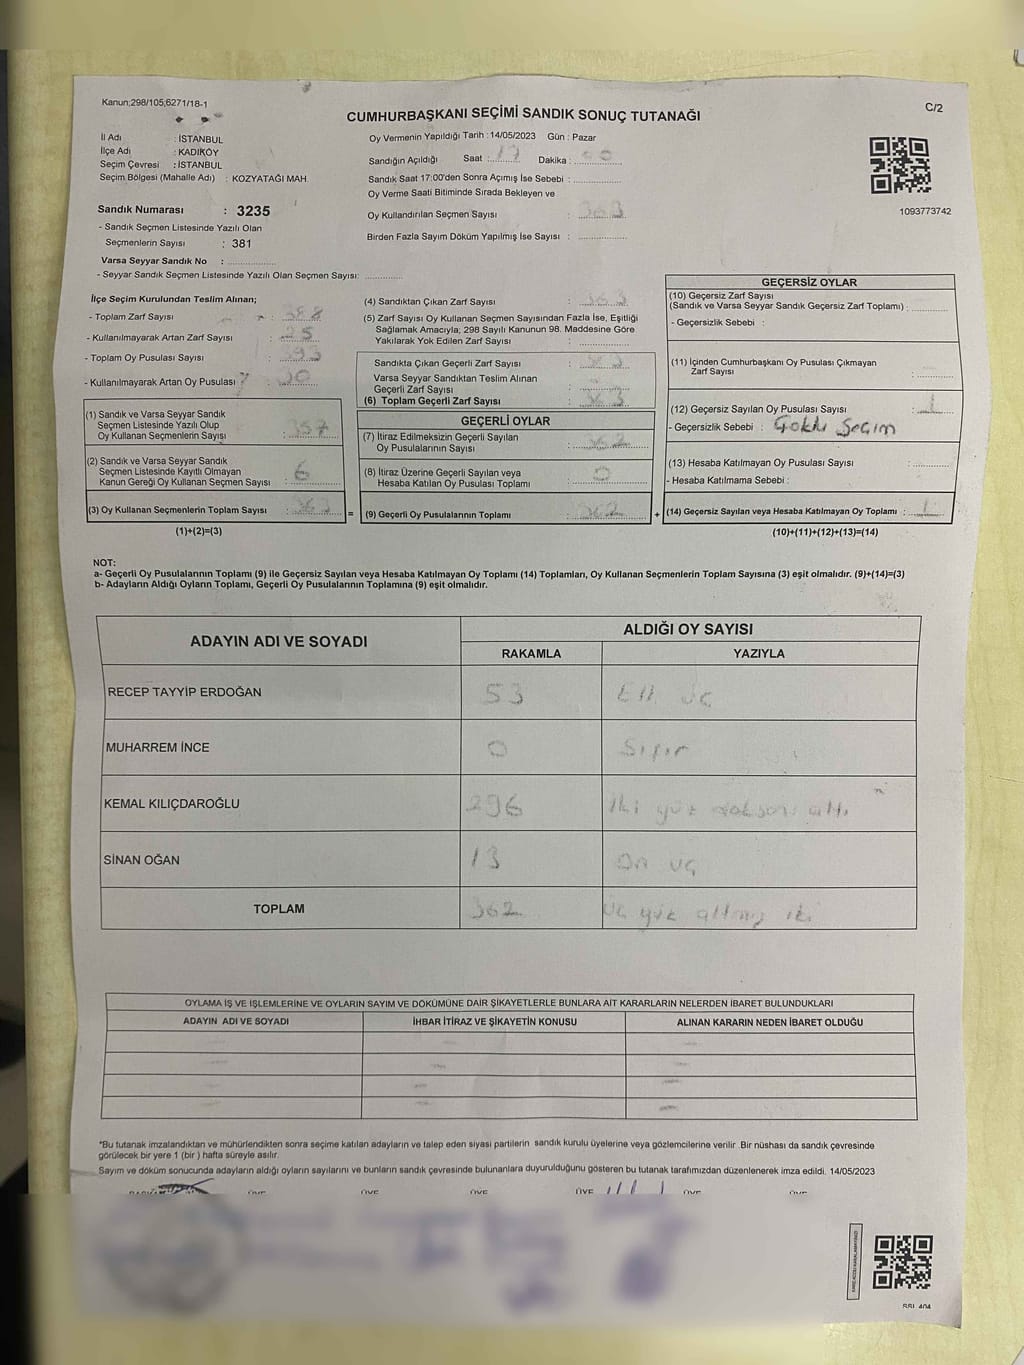 Kanun;298/105;6271/18-1
C/2
CUMHURBAŞKANI SEÇİMİ SANDIK SONUÇ TUTANAĞI
İl Adı : İSTANBUL
İlçe Adı : KADIKÖY
Seçim Çevresi : İSTANBUL
Seçim Bölgesi (Mahalle Adı) : KOZYATAĞI MAH.
Oy Vermenin Yapıldığı Tarih : 14/05/2023 Gün : Pazar
Sandığın Açıldığı Saat : 17 Dakika : 00
Sandık Saat 17:00'den Sonra Açımış İse Sebebi :
Oy Verme Saati Bitiminde Sırada Bekleyen ve
Oy Kullandırılan Seçmen Sayısı : 363
Birden Fazla Sayım Döküm Yapılmış İse Sayısı :
1093773742
Sandık Numarası : 3235
- Sandık Seçmen Listesinde Yazılı Olan
Seçmenlerin Sayısı : 381
Varsa Seyyar Sandık No :
- Seyyar Sandık Seçmen Listesinde Yazılı Olan Seçmen Sayısı:
İlçe Seçim Kurulundan Teslim Alınan;
- Toplam Zarf Sayısı : 388
- Kullanılmayarak Artan Zarf Sayısı : 25
- Toplam Oy Pusulası Sayısı : 393
- Kullanılmayarak Artan Oy Pusulası : 30
(1) Sandık ve Varsa Seyyar Sandık
Seçmen Listesinde Yazılı Olup
Oy Kullanan Seçmenlerin Sayısı : 357
(2) Sandık ve Varsa Seyyar Sandık
Seçmen Listesinde Kayıtlı Olmayan
Kanun Gereği Oy Kullanan Seçmen Sayısı : 6
(3) Oy Kullanan Seçmenlerin Toplam Sayısı : 363
(1)+(2)=(3)
(4) Sandıktan Çıkan Zarf Sayısı : 363
(5) Zarf Sayısı Oy Kullanan Seçmen Sayısından Fazla İse, Eşitliği
Sağlamak Amacıyla; 298 Sayılı Kanunun 98. Maddesine Göre
Yakılarak Yok Edilen Zarf Sayısı :
Sandıkta Çıkan Geçerli Zarf Sayısı :
Varsa Seyyar Sandıktan Teslim Alınan
Geçerli Zarf Sayısı :
(6) Toplam Geçerli Zarf Sayısı :
GEÇERLİ OYLAR
(7) İtiraz Edilmeksizin Geçerli Sayılan
Oy Pusulalarının Sayısı : 362
(8) İtiraz Üzerine Geçerli Sayılan veya
Hesaba Katılan Oy Pusulası Toplamı : 0
= (9) Geçerli Oy Pusulalarının Toplamı : 362
GEÇERSİZ OYLAR
(10) Geçersiz Zarf Sayısı
(Sandık ve Varsa Seyyar Sandık Geçersiz Zarf Toplamı) :
- Geçersizlik Sebebi :
(11) İçinden Cumhurbaşkanı Oy Pusulası Çıkmayan
Zarf Sayısı :
(12) Geçersiz Sayılan Oy Pusulası Sayısı : 1
- Geçersizlik Sebebi : Çoklu Seçim
(13) Hesaba Katılmayan Oy Pusulası Sayısı :
- Hesaba Katılmama Sebebi :
+ (14) Geçersiz Sayılan veya Hesaba Katılmayan Oy Toplamı : 1
(10)+(11)+(12)+(13)=(14)
NOT:
a- Geçerli Oy Pusulalarının Toplamı (9) ile Geçersiz Sayılan veya Hesaba Katılmayan Oy Toplamı (14) Toplamları, Oy Kullanan Seçmenlerin Toplam Sayısına (3) eşit olmalıdır. (9)+(14)=(3)
b- Adayların Aldığı Oyların Toplamı, Geçerli Oy Pusulalarının Toplamına (9) eşit olmalıdır.
ADAYIN ADI VE SOYADI
ALDIĞI OY SAYISI
RAKAMLA YAZIYLA
RECEP TAYYİP ERDOĞAN 53 Elli üç
MUHARREM İNCE 0 Sıfır
KEMAL KILIÇDAROĞLU 296 iki yüz doksan altı
SİNAN OĞAN 13 On üç
TOPLAM 362 Üç yüz altmış iki
OYLAMA İŞ VE İŞLEMLERİNE VE OYLARIN SAYIM VE DÖKÜMÜNE DAİR ŞİKAYETLERLE BUNLARA AİT KARARLARIN NELERDEN İBARET BULUNDUKLARI
ADAYIN ADI VE SOYADI İHBAR İTİRAZ VE ŞİKAYETİN KONUSU ALINAN KARARIN NEDEN İBARET OLDUĞU
*Bu tutanak imzalandıktan ve mühürlendikten sonra seçime katılan adayların ve talep eden siyasi partilerin sandık kurulu üyelerine veya gözlemcilerine verilir. Bir nüshası da sandık çevresinde
görülecek bir yere 1 (bir) hafta süreyle asılır.
Sayım ve döküm sonucunda adayların aldığı oyların sayılarını ve bunların sandık çevresinde bulunanlara duyurulduğunu gösteren bu tutanak tarafımızdan düzenlenerek imza edildi. 14/05/2023
ÜYE ÜYE ÜYE ÜYE ÜYE ÜYE